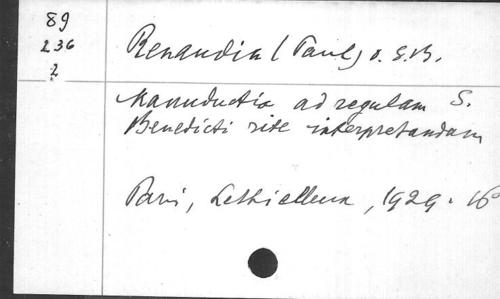 89
236
2
Renaudin (Paul) O.S.B.
Manuductio ad regulam S.
Benedicti rite interpretandam
Paris, Lethielleux, 1929. 16°